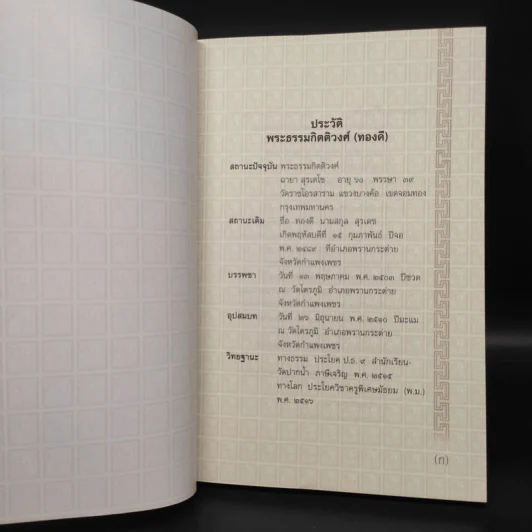 ประวัติ
พระธรรมกิตติวงศ์ (ทองดี)
สถานะปัจจุบัน พระธรรมกิตติวงศ์
ฉายา สุรเตโช อายุ ๖๐ พรรษา ๓๙
วัดราชโอรสาราม แขวงบางค้อ เขตจอมทอง
กรุงเทพมหานคร
สถานะเดิม ชื่อ ทองดี นามสกุล สุรเดช
เกิดพฤหัสบดีที่ ๑๔ กุมภาพันธ์ ปีจอ
พ.ศ. ๒๔๘๙ ที่อำเภอพรานกระต่าย
จังหวัดกำแพงเพชร
บรรพชา วันที่ ๑๓ พฤษภาคม พ.ศ. ๒๕๐๓ ปีชวด
ณ วัดไตรภูมิ อำเภอพรานกระต่าย
จังหวัดกำแพงเพชร
อุปสมบท วันที่ ๒๖ มิถุนายน พ.ศ. ๒๕๑๐ ปีมะแม
ณ วัดไตรภูมิ อำเภอพรานกระต่าย
จังหวัดกำแพงเพชร
วิทยฐานะ ทางธรรม ประโยค ป.ธ. ๙ สำนักเรียน-
วัดปากน้ำ ภาษีเจริญ พ.ศ. ๒๕๑๕
ทางโลก ประโยควิชาครูพิเศษมัธยม (พ.ม.)
พ.ศ. ๒๕๑๖
(ก)